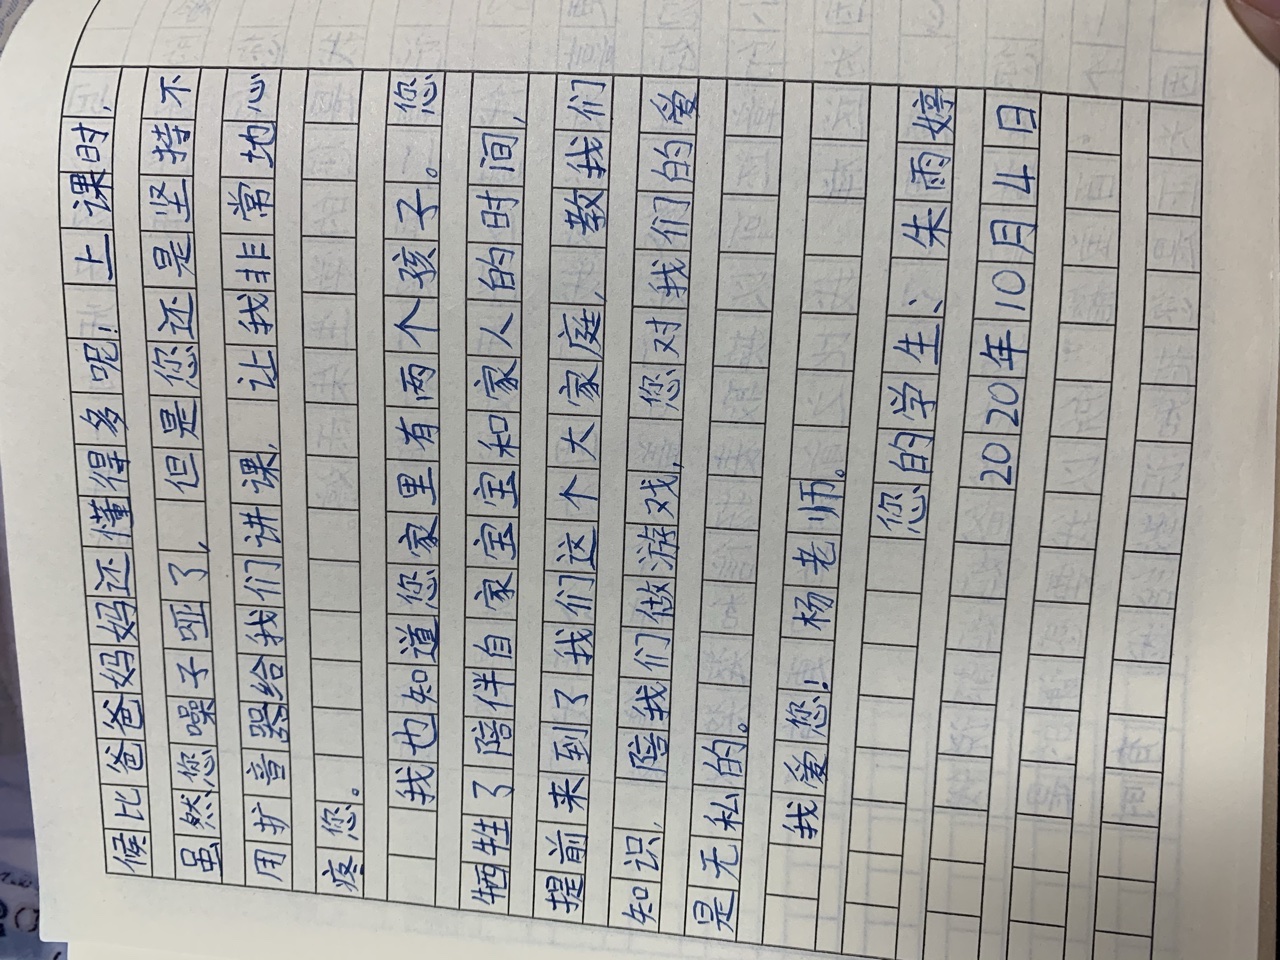 候比爸爸妈妈还懂得多呢!上课时,
虽然您嗓子哑了,但是您还是坚持不
用扩音器给我们讲课,让我非常地心
疼您。
我也知道您家里有两个孩子。您
牺牲了陪伴自家宝宝和家人的时间,
提前来到了我们这个大家庭,教我们
知识,陪我们做游戏,您对我们的爱
是无私的。
我爱您!杨老师。
您的学生:朱雨婷
2020年10月4日